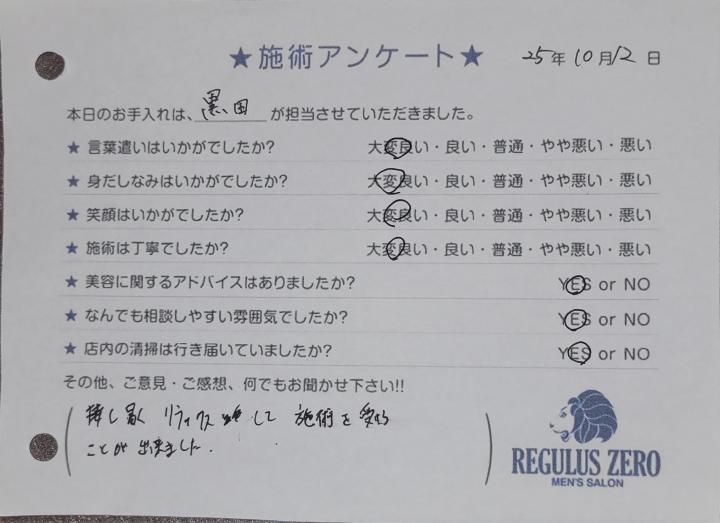 ★施術アンケート★ 25年10月12日
本日のお手入れは、黒田が担当させていただきました。
★ 言葉遣いはいかがでしたか? 大変良い・良い・普通・やや悪い・悪い
★ 身だしなみはいかがでしたか? 大変良い・良い・普通・やや悪い・悪い
★ 笑顔はいかがでしたか? 大変良い・良い・普通・やや悪い・悪い
★ 施術は丁寧でしたか? 大変良い・良い・普通・やや悪い・悪い
★ 美容に関するアドバイスはありましたか? YES or NO
★ なんでも相談しやすい雰囲気でしたか? YES or NO
★ 店内の清掃は行き届いていましたか? YES or NO
その他、ご意見・ご感想、何でもお聞かせ下さい!!
し易く リラックスして 施術を受ける
ことが出来ました.
REGULUS ZERO
MEN'S SALON